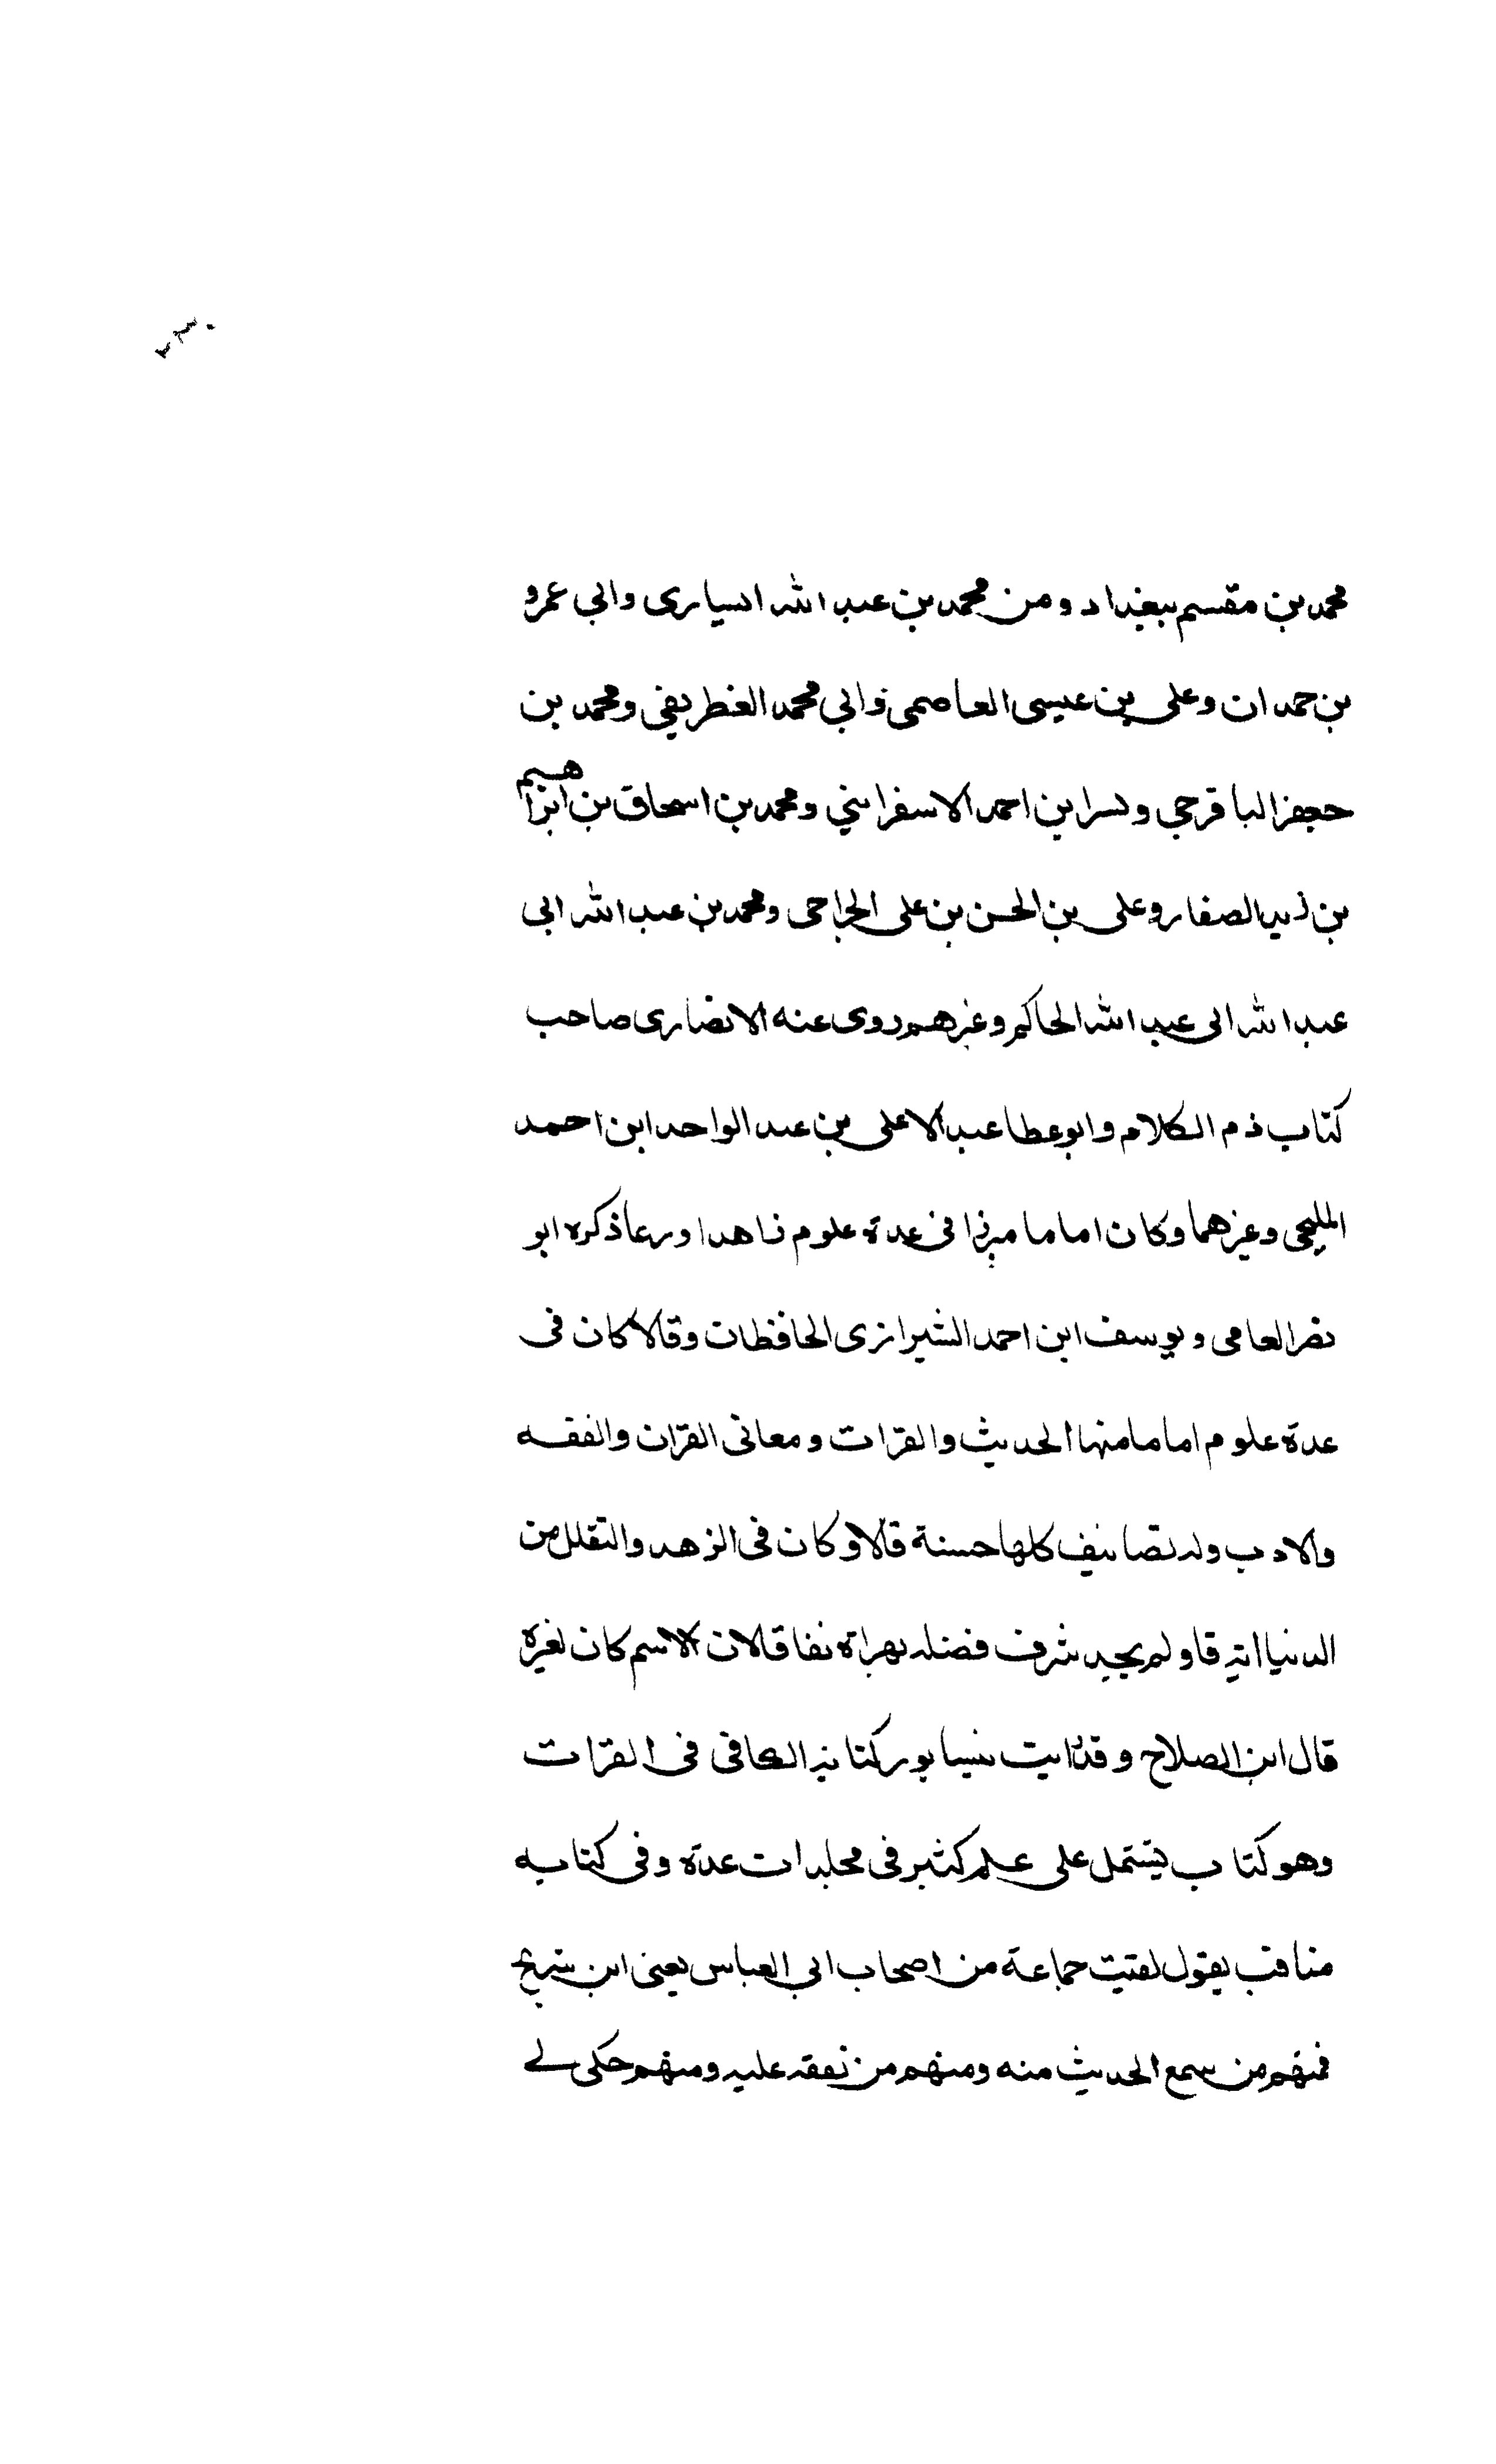 محمد بن مقسم ببغداد ومن محمد بن عبد الله السيارى وابي عمرو
بن حمدان وعلى بن عيسى العاصمى وابي محمد الغطريفي ومحمد بن
جعفر الباقرحي وبسر ابن احمد الاسفرايني ومحمد بن اسحاق بن ابراهيم
بن زيد الصفار وعلى بن الحسن بن على الجراحى ومحمد بن عبد الله ابى
عبد الله ابى عبد الله الحاكم وغيرهم روى عنه الانصارى صاحب
كتاب ذم الكلام وابو عطا عبد الاعلى بن عبد الواحد ابن احمد
المليحى وغيرهما وكان اماما مبرزا في عدة علوم زاهدا ورعا ذكره ابو
نصر العامى ويوسف ابن احمد الشيرازى الحافظات وقالا كان فى
عدة علوم اماما منها الحديث والقرات ومعانى القران والفقه
والادب وله تصانيف كلها حسنة قالا وكان فى الزهد والتقلل من
الدنيا اية قا ولم يجد شرف فضله بهراة نفاقلان الاسم كان لغيره
قال ابن الصلاح وقد رايت بنيسابور كتابه الكافى فى القرات
وهو كتاب يشتمل على علم كثير فى مجلدات عدة وفى كتابه
مناقب يقول لقيت جماعة من اصحاب ابى العباس يعنى ابن شريح
فمنهم من سمع الحديث منه ومنهم من تفقه عليه ومنهم حكى لى